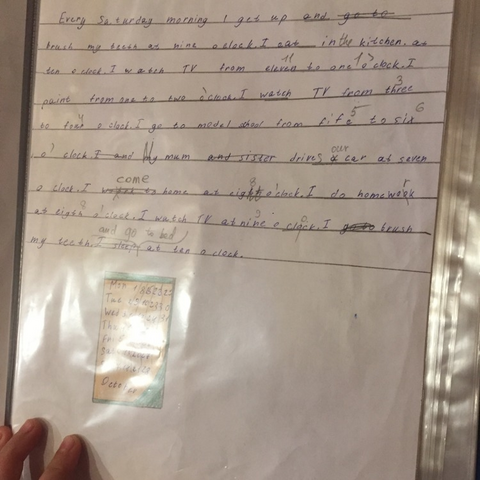 Every Saturday morning I get up and go to
brush my teeth at nine o clock. I eat in the kitchen. at
11 1
ten o clock. I watch TV from eleven to one o'clock. I
3
paint from one to two o'clock. I watch TV from three
4 5 6
to four o clock. I go to model shool from fife to six
our
o' clock. I and My mum and sister drives a car at seven
come 8
o clock. I home at eighth o'clock. I do homework
8 9
at eigth o'clock. I watch TV at nine o clock. I go to brush
and go to bed
my teeth. I at ten o clock.
Mon
Tue
Wed